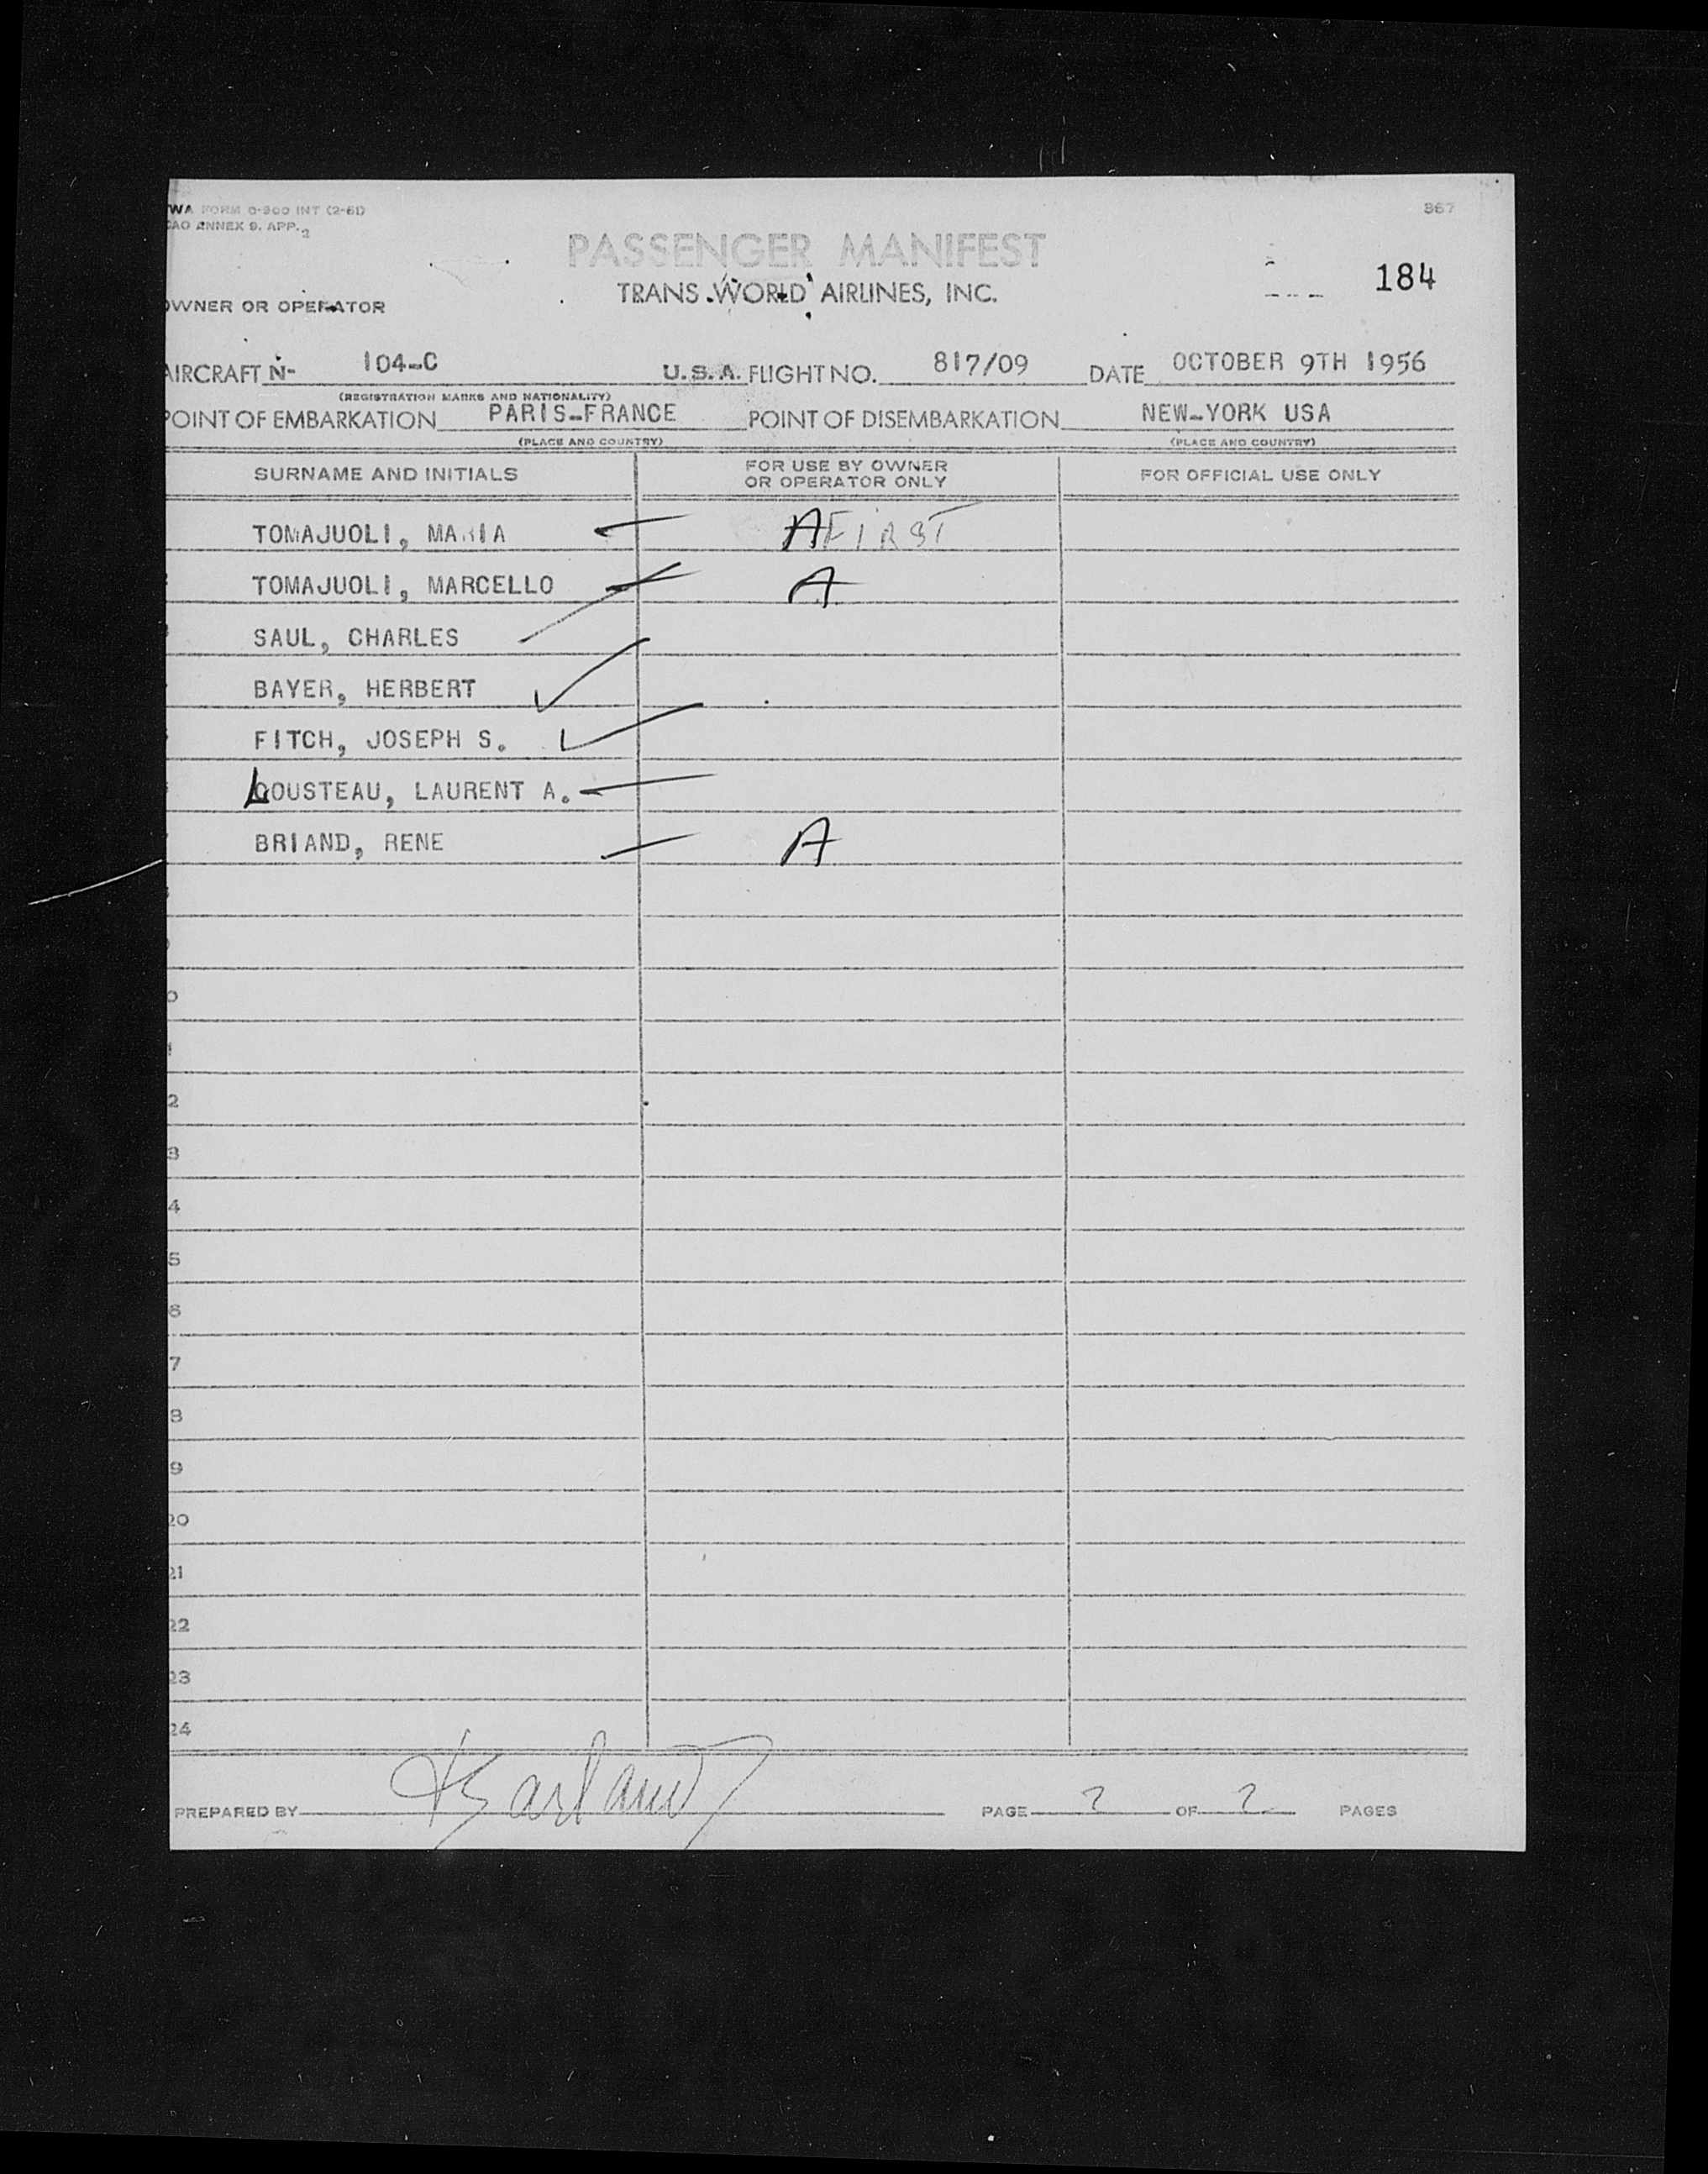 WA FORM O-200 INT (2-51)
CAO ANNEX 9. APP. 2
867
PASSENGER MANIFEST
184
TRANS WORLD AIRLINES, INC.
OWNER OR OPERATOR
AIRCRAFT N- 104-C U.S.A. FLIGHT NO. 817/09 DATE OCTOBER 9TH 1956
(REGISTRATION MARKS AND NATIONALITY)
POINT OF EMBARKATION PARIS-FRANCE POINT OF DISEMBARKATION NEW-YORK USA
(PLACE AND COUNTRY) (PLACE AND COUNTRY)
SURNAME AND INITIALS FOR USE BY OWNER OR OPERATOR ONLY FOR OFFICIAL USE ONLY
TOMAJUOLI, MARIA A FIRST
TOMAJUOLI, MARCELLO A
SAUL, CHARLES
BAYER, HERBERT
FITCH, JOSEPH S.
LOUSTEAU, LAURENT A.
BRIAND, RENE A
0
1
2
3
4
5
6
7
8
9
20
21
22
23
24
PREPARED BY PAGE 2 OF 2 PAGES